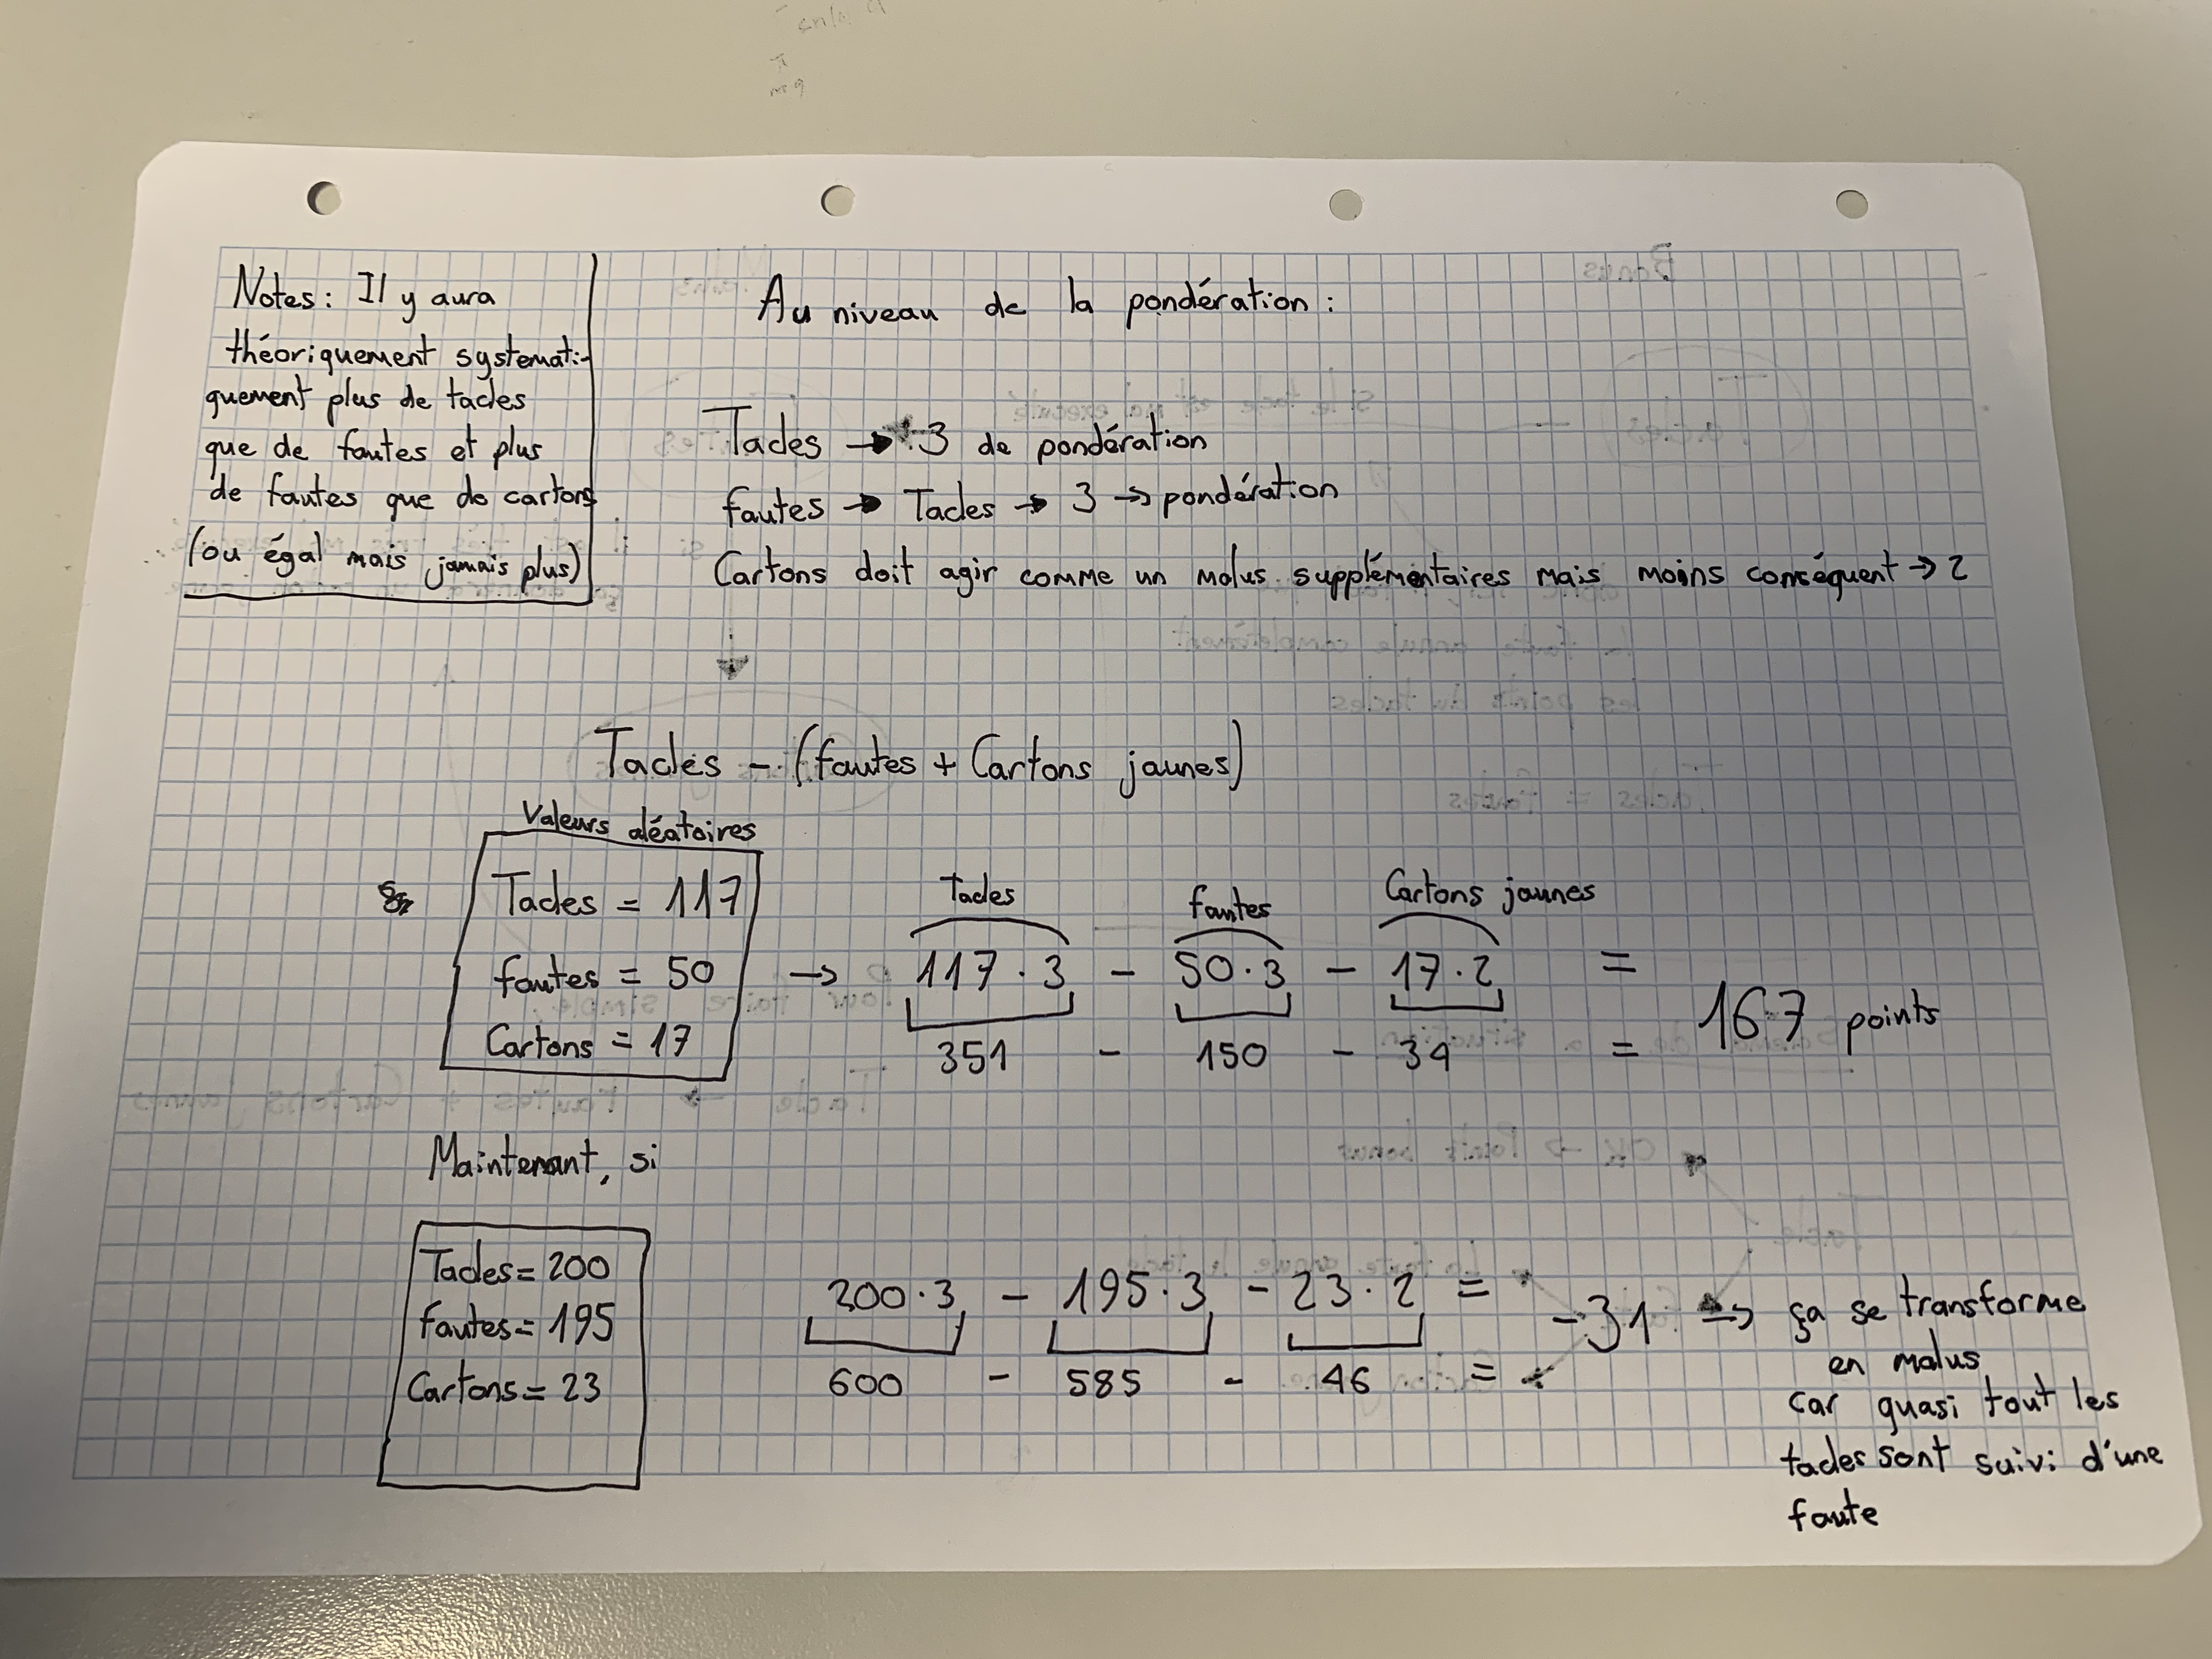 Notes: Il y aura
théoriquement systemati-
quement plus de tacles
que de fautes et plus
de fautes que de cartons
(ou égal mais jamais plus)
Au niveau de la pondération :
Tacles → 3 de pondération
fautes → Tacles → 3 → pondération
Cartons doit agir comme un malus supplémentaires mais moins conséquent → 2
Tacles - (fautes + Cartons jaunes)
Valeurs aléatoires
Tacles = 117
fautes = 50
Cartons = 17
→
Tacles fautes Cartons jaunes
117 · 3 - 50 · 3 - 17 · 2 =
351 - 150 - 34 =
167 points
Maintenant, si
Tacles = 200
fautes = 195
Cartons = 23
200 · 3 - 195 · 3 - 23 · 2 =
600 - 585 - 46 =
-31 → ça se transforme
en malus
car quasi tout les
tacles sont suivi d'une
faute